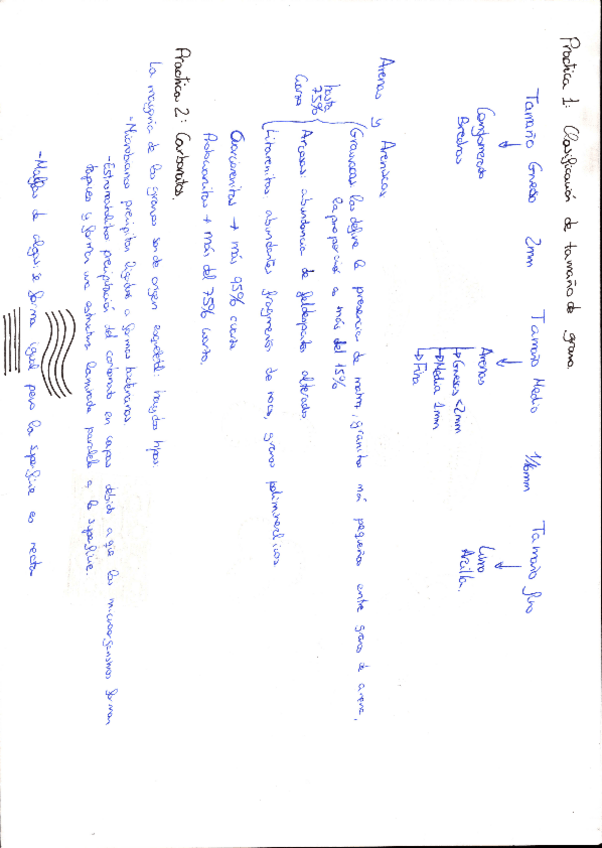 Practica 1: Clasificación de tamaño de grano.
Tamaño Grueso 2mm Tamaño Medio 1/16mm Tamaño fino
Conglomerado Arenas Limo
Brechas → Gruesa <2mm Arcilla.
→ Media 1mm
→ Fina
Arenas y Areniscas
hasta 75% Cuarzo
Grauvacas los define la presencia de matriz, granitos más pequeños entre granos de arena,
la proporción es más del 15%
Arcosas: abundancia de feldespato alterado
Litarenitas abundantes fragmentos de roca, granos poliminerálicos
Cuarzoarenitas → más 95% cuarzo
→ más del 75% cuarzo.
Practica 2: Carbonatos.
La mayoria de los granos son de origen esquelético: hay dos tipos.
- Microbianos precipitan ligados a formas bacterianas.
- Estromatolitos precipitación del carbonato en capas debido a que los microorganismos forman
tapices y forman una estructura laminada paralela a la superficie.
- Mallas de algas: se forma igual pero la superficie es recta